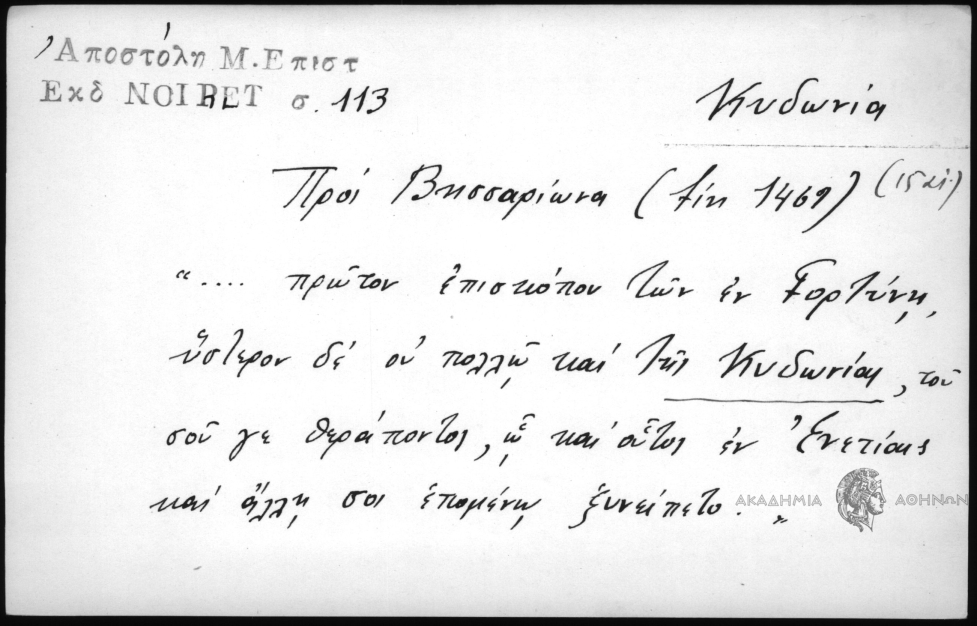 Ἀποστόλη Μ. Επιστ
Εκδ NOIRET σ. 113
Κυδωνία
Πρὸς Βησσαρίωνα (τέλη 1469) (15 αἰ.)
“.... πρῶτον ἐπισκόπου τῶν ἐν Γορτύνῃ,
ὕστερον δὲ οὐ πολλῷ καὶ τῆς Κυδωνίας, τοῦ
σοῦ γε θεράποντος, ᾧ καὶ οὗτος ἐν Ἐνετίαις
καὶ ἄλλῃ σοι ἑπομένῳ ξυνείπετο. „
ΑΚΑΔΗΜΙΑ ΑΘΗΝΩΝ